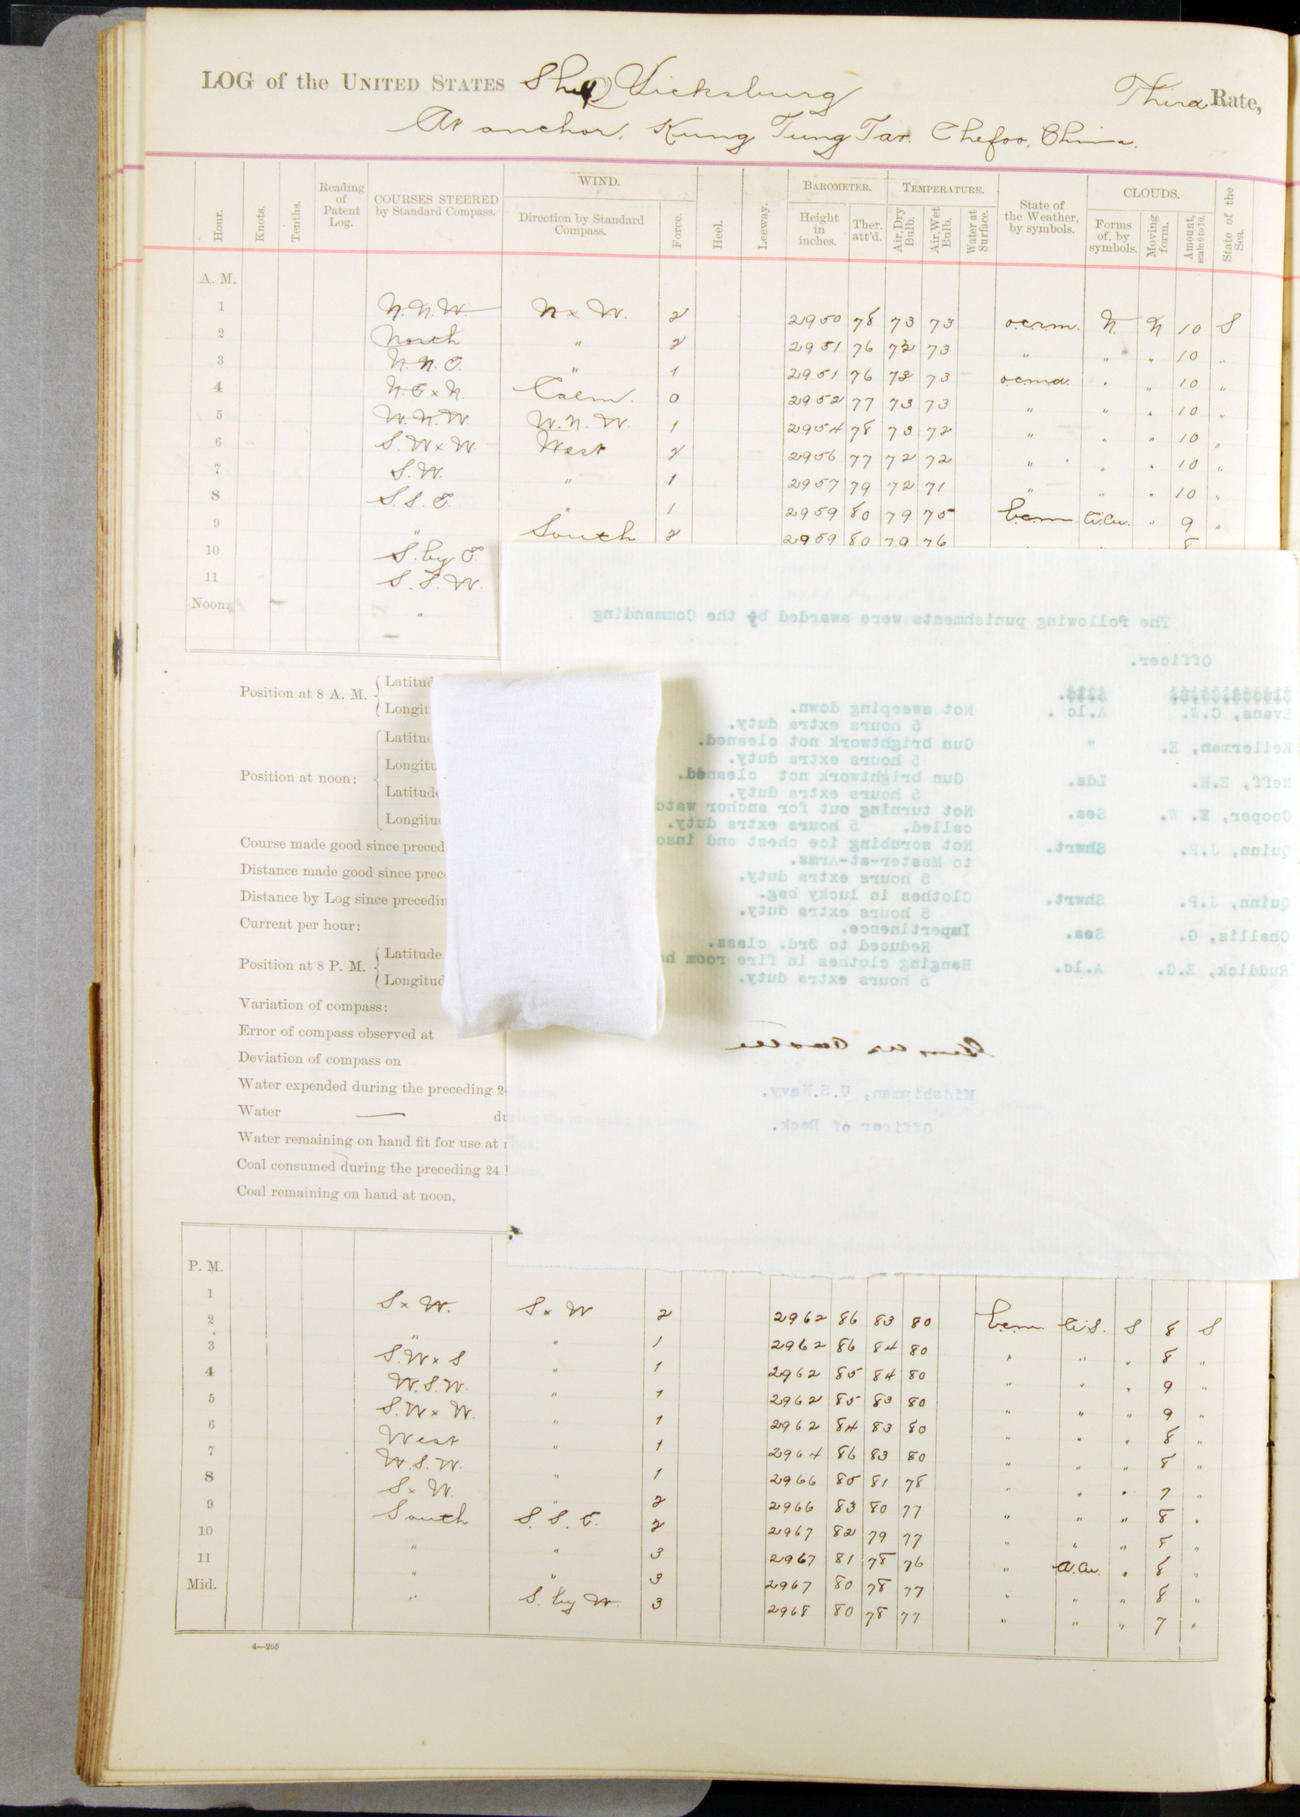 LOG of the UNITED STATES Ship Vicksburg Third Rate,
At anchor, Kung Tung Tao. Chefoo, China.
Hour. Knots. Tenths. Reading of Patent Log. COURSES STEERED by Standard Compass. WIND. Direction by Standard Compass. Force. Heel. Leeway. BAROMETER. Height in inches. Ther. att'd. TEMPERATURE. Air, Dry Bulb. Air, Wet Bulb. Water at Surface. State of the Weather, by symbols. CLOUDS. Forms of, by symbols. Moving form. Amount, scale 0 to 10. State of the Sea.
A. M.
1 N.N.W. N x W. 2 2950 78 73 73 ocrm. N N 10 S
2 North " 2 2951 76 72 73 " " " 10 "
3 N.N.E. " 1 2951 76 72 73 ocmd. " " 10 "
4 N E x N. Calm. 0 2952 77 73 73 " " " 10 "
5 W.N.W. W.N.W. 1 2954 78 73 72 " " " 10 "
6 S.W x W. West 2 2956 77 72 72 " " " 10 "
7 S.W. " 1 2957 79 72 71 " " " 10 "
8 S.S.E. " 1 2959 80 79 75 bcm Ci.Cu. " 9 "
9 " South 2 2959 80 79 76 8
10 S. by E.
11 S.S.W.
Noon, "
Position at 8 A. M. Latitud
Longit
Position at noon: Latitud
Longitu
Latitud
Longitu
Course made good since preced
Distance made good since prec
Distance by Log since precedin
Current per hour:
Position at 8 P. M. Latitude
Longitud
Variation of compass:
Error of compass observed at
Deviation of compass on
Water expended during the preceding 2
Water — du
Water remaining on hand fit for use at n
Coal consumed during the preceding 24 h
Coal remaining on hand at noon,
The following punishments were awarded by the Commanding
Officer.
Evans, C.W. A.1c. Not sweeping down.
5 hours extra duty.
Kellerman, E. " Gun brightwork not cleaned.
5 hours extra duty.
Neff, E.H. Lds. Gun brightwork not cleaned.
5 hours extra duty.
Cooper, E. W. Sea. Not turning out for anchor watc
called. 5 hours extra duty.
Quinn, J.P. Shwrt. Not scrubing ice chest and inso
to Master-at-Arms.
5 hours extra duty.
Quinn, J.P. Shwrt. Clothes in lucky bag.
5 hours extra duty.
Challis, G. Sea. Impertinence.
Reduced to 3rd. class.
Ruddick, E.G. A.1c. Hanging clothes in fire room ha
5 hours extra duty.
Midshipman, U.S.Navy.
Officer of Deck.
P. M.
1 S x W. S x W 2 2962 86 83 80 bcm Ci.S. S 8 S
2 " " 1 2962 86 84 80 " " " 8 "
3 S.W x S " 1 2962 85 84 80 " " " 9 "
4 W.S.W. " 1 2962 85 83 80 " " " 9 "
5 S.W x W. " 1 2962 84 83 80 " " " 8 "
6 West " 1 2964 86 83 80 " " " 8 "
7 W.S.W. " 1 2966 85 81 78 " " " 7 "
8 S x W. " 2 2966 83 80 77 " " " 8 "
9 South S.S.E. 2 2967 82 79 77 " " " 8 "
10 " " 3 2967 81 78 76 " A.Cu. " 8 "
11 " " 3 2967 80 78 77 " " " 8 "
Mid. " S. by W. 3 2968 80 78 77 " " " 7 "
4—265